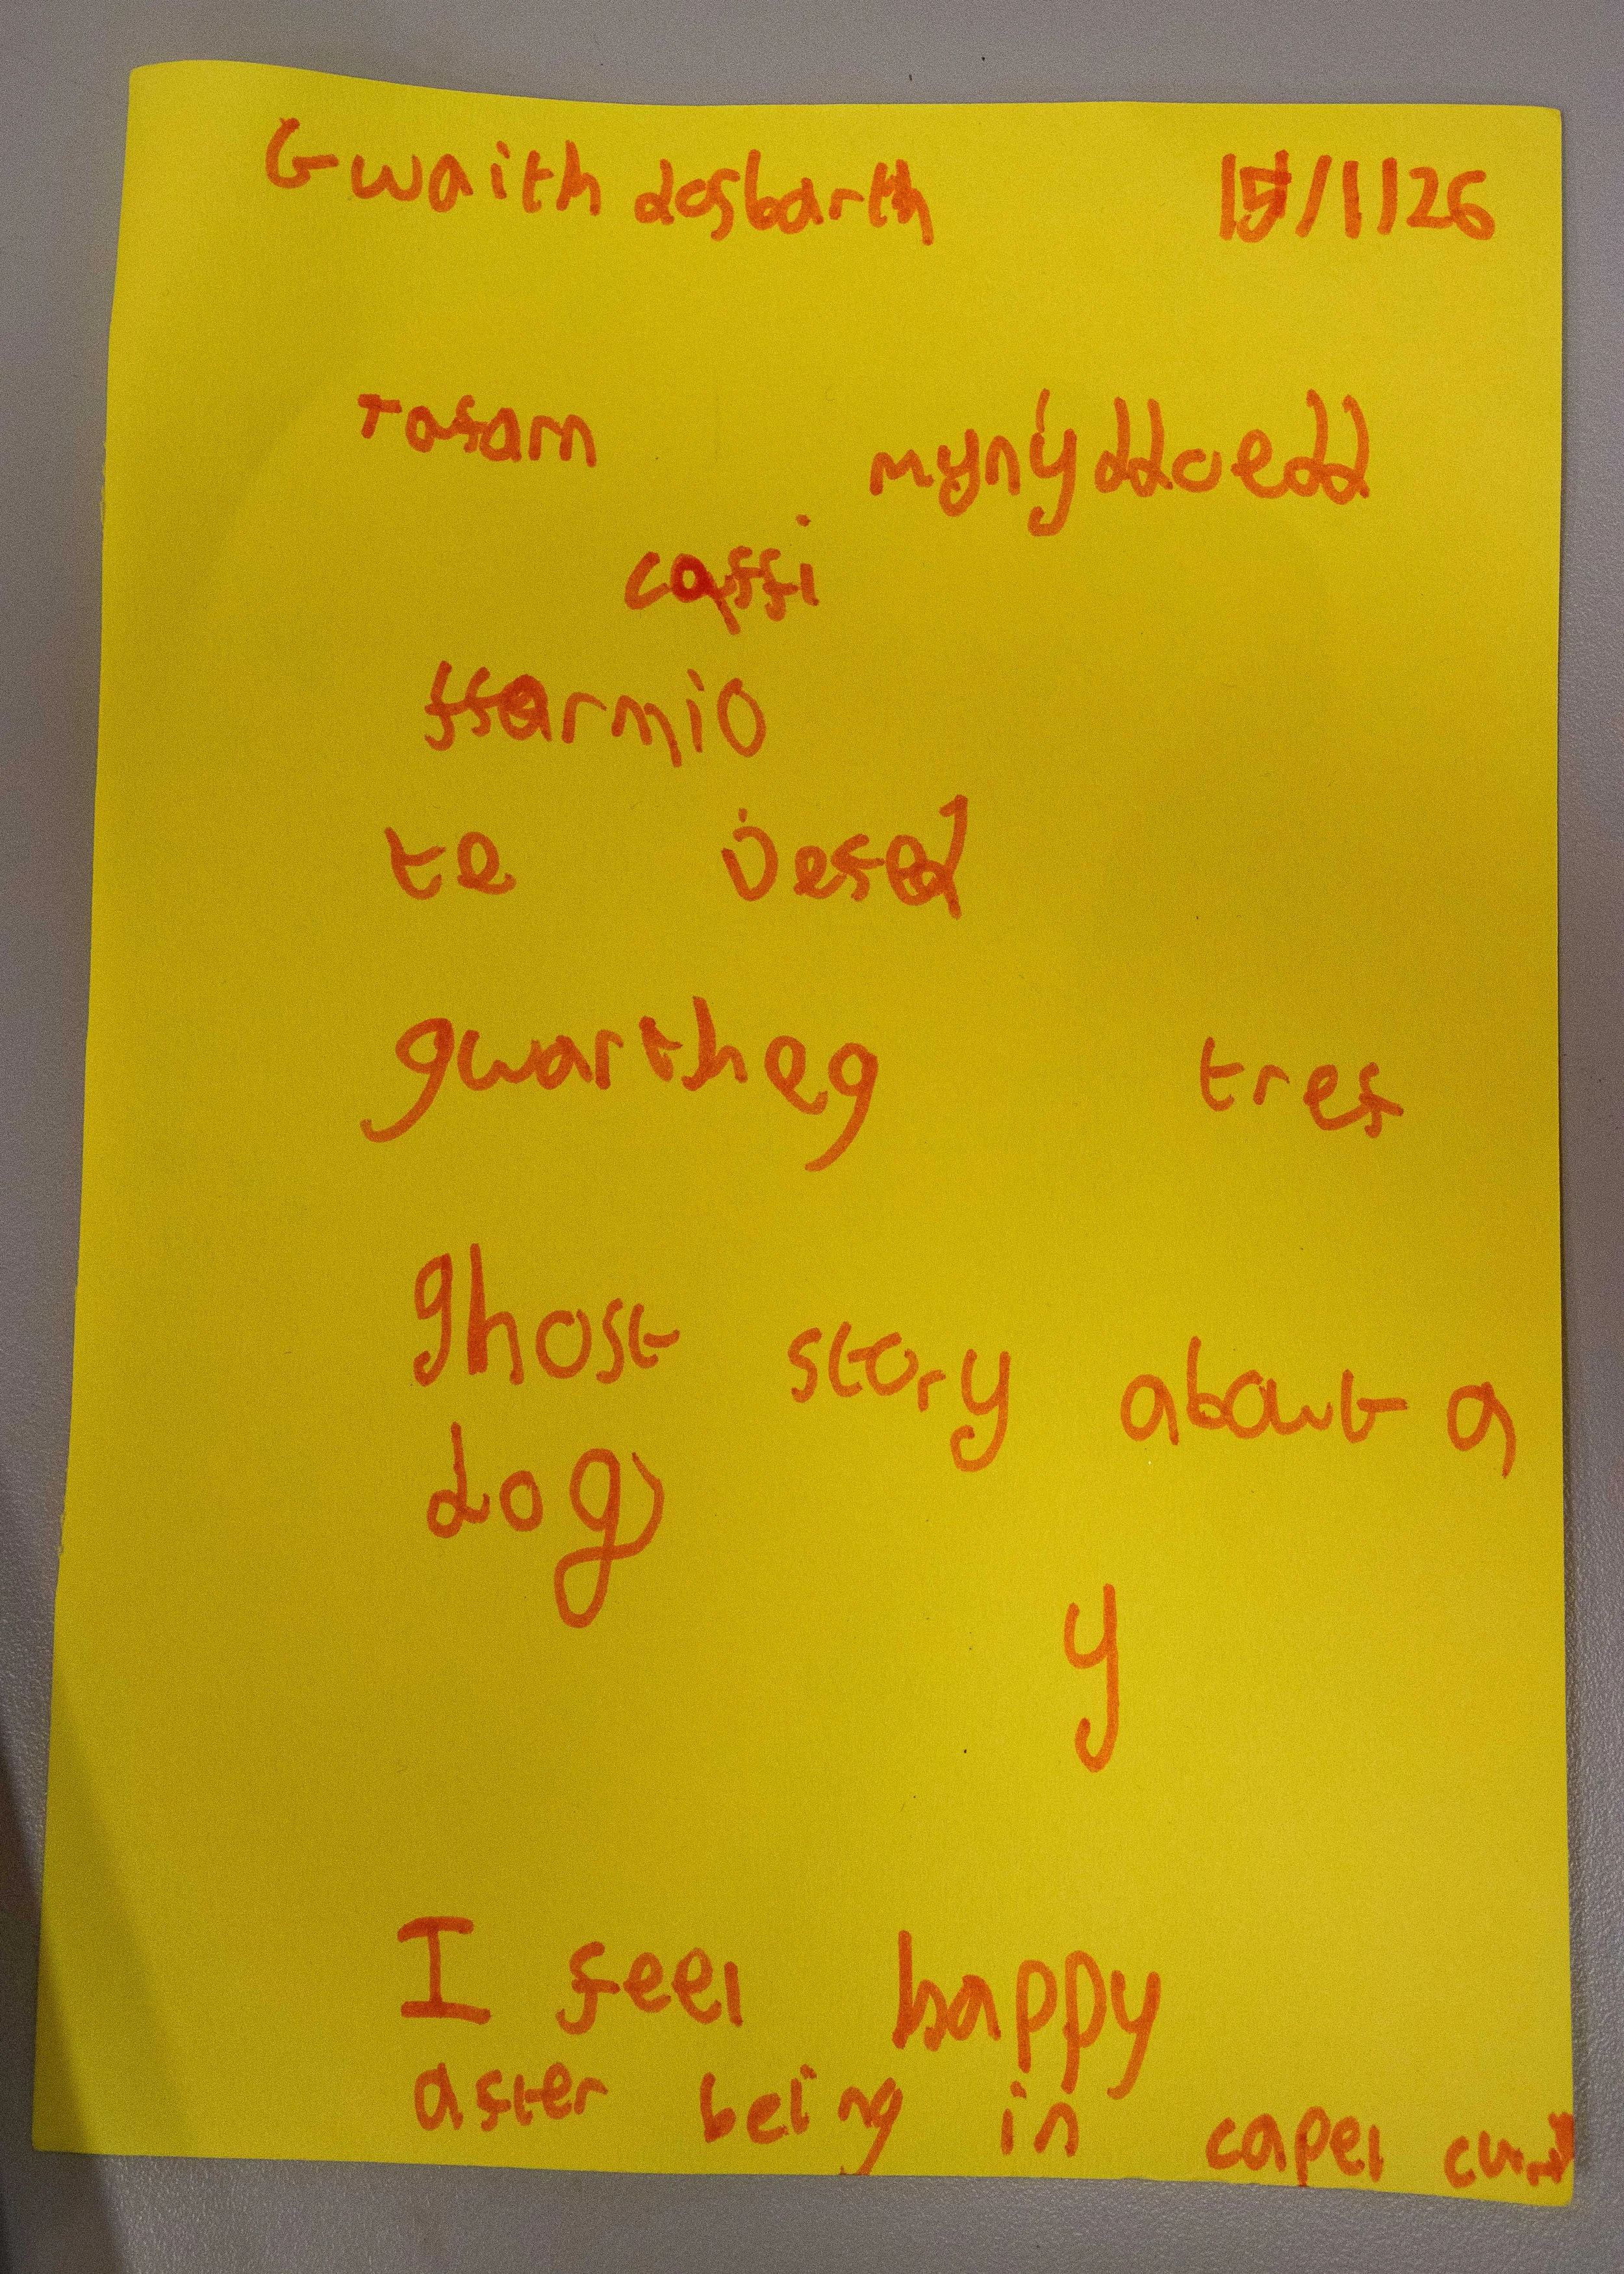 Gwaith dosbarth 15/1/26
Tafarn mynyddoedd
caffi
ffarmio
te
gwartheg tref
ghost story about a
dog
y
I feel happy
after being in capel